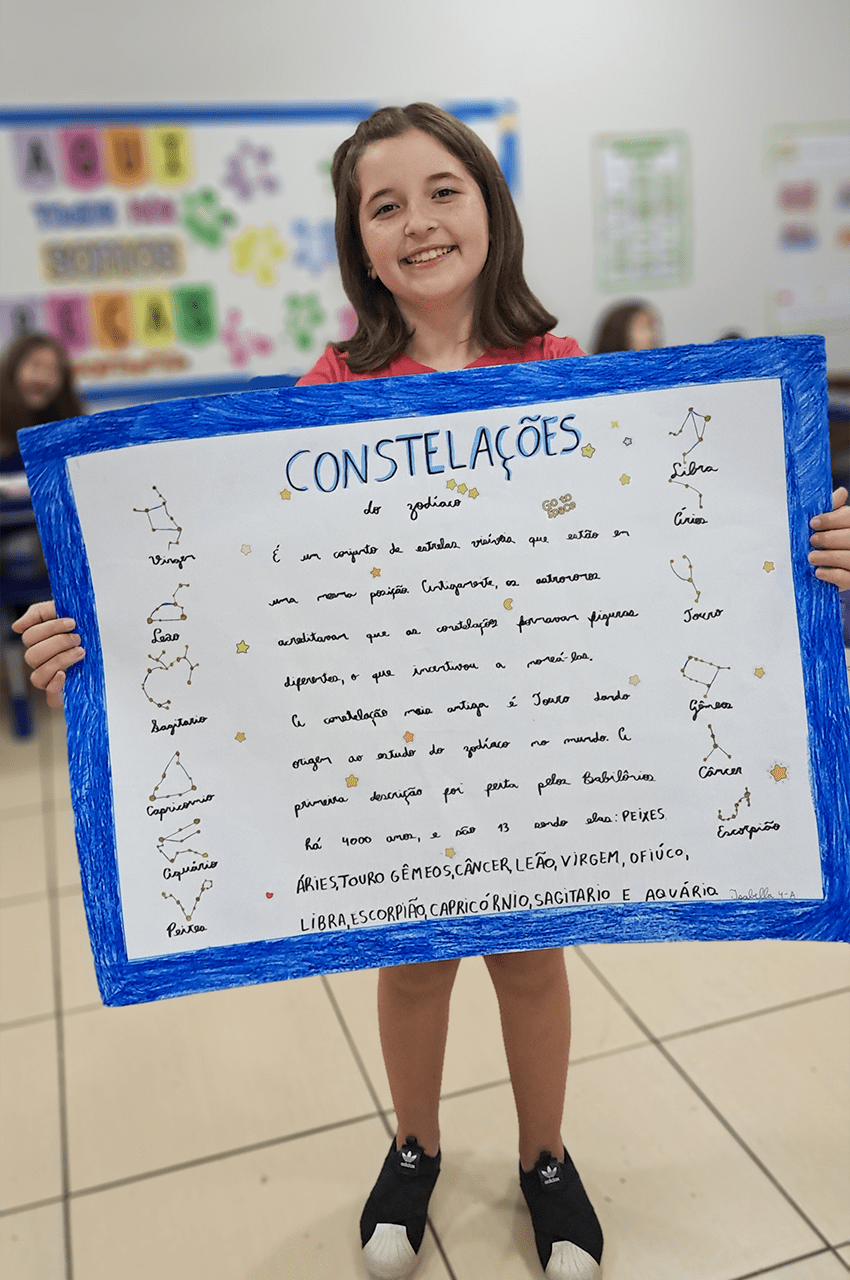 AQUI
TODOS NÓS
SOMOS
PEÇAS
CONSTELAÇÕES
do zodíaco
GO to
SPACE
É um conjunto de estrelas visíveis que estão em
uma mesma posição. Antigamente, os astronomos
acreditavam que as constelações formavam figuras
diferentes, o que incentivou a nomeá-las.
A constelação mais antiga é Touro dando
origem ao estudo do zodíaco no mundo. A
primeira descrição foi feita pelos Babilônios
há 4000 anos, e são 13 sendo elas: PEIXES
ÁRIES, TOURO GÊMEOS, CÂNCER, LEÃO, VIRGEM, OFIÚCO,
LIBRA, ESCORPIÃO, CAPRICÓRNIO, SAGITARIO E AQUÁRIO
Isabella 4-A
Virgem
Leão
Sagitario
Capricornio
Aquário
Peixes
Libra
Áries
Touro
Gêmeos
Câncer
Escorpião
adidas
adidas